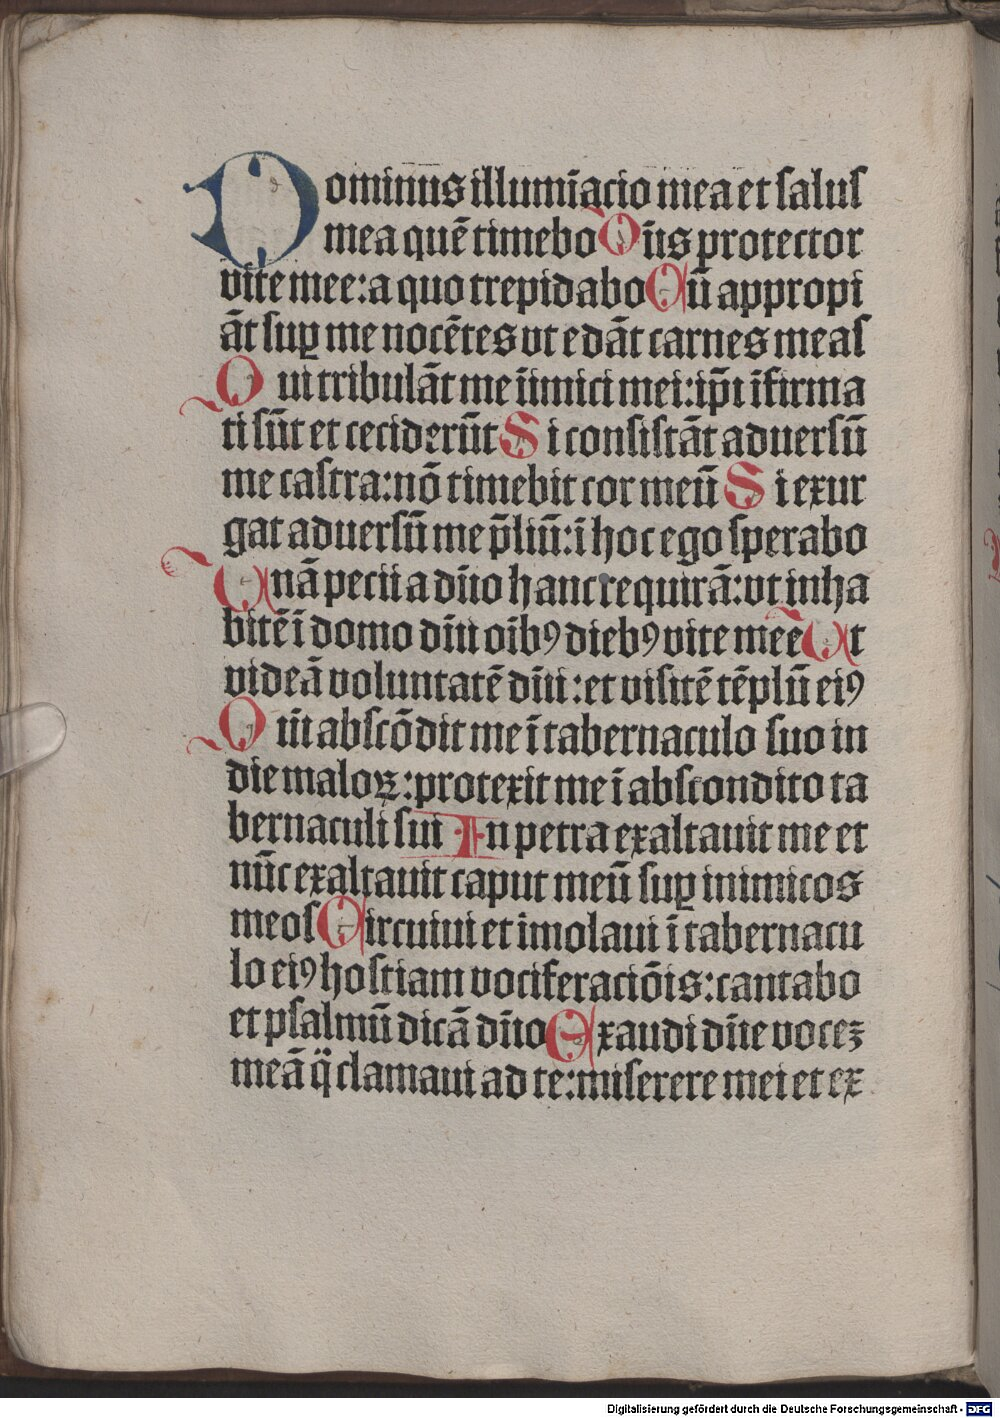 Dominus illumīacio mea et salus
mea quē timebo Dn̄s protector
vite mee: a quo trepidabo Cū appropi
āt suꝑ me nocētes vt edāt carnes meas
Qui tribulāt me īimici mei: ip̄i īfirma
ti sūt et ceciderūt Si consistāt aduersū
me castra: nō timebit cor meū Si exur
gat aduersū me p̄liū: ī hoc ego sperabo
Vnā pecii a dn̄o hanc requirā: vt inha
bitē ī domo dn̄i oībꝰ diebꝰ vite mee Vt
videā voluntatē dn̄i: et visitē tēplū eiꝰ
Qm̄ abscōdit me ī tabernaculo suo in
die maloꝝ: protexit me ī abscondito ta
bernaculi sui In petra exaltauit me et
nūc exaltauit caput meū suꝑ inimicos
meos Circuiui et imolaui ī tabernacu
lo eiꝰ hostiam vociferaciōis: cantabo
et psalmū dicā dn̄o Exaudi dn̄e vocez
meā q̄ clamaui ad te: miserere mei et ex
Digitalisierung gefördert durch die Deutsche Forschungsgemeinschaft - DFG